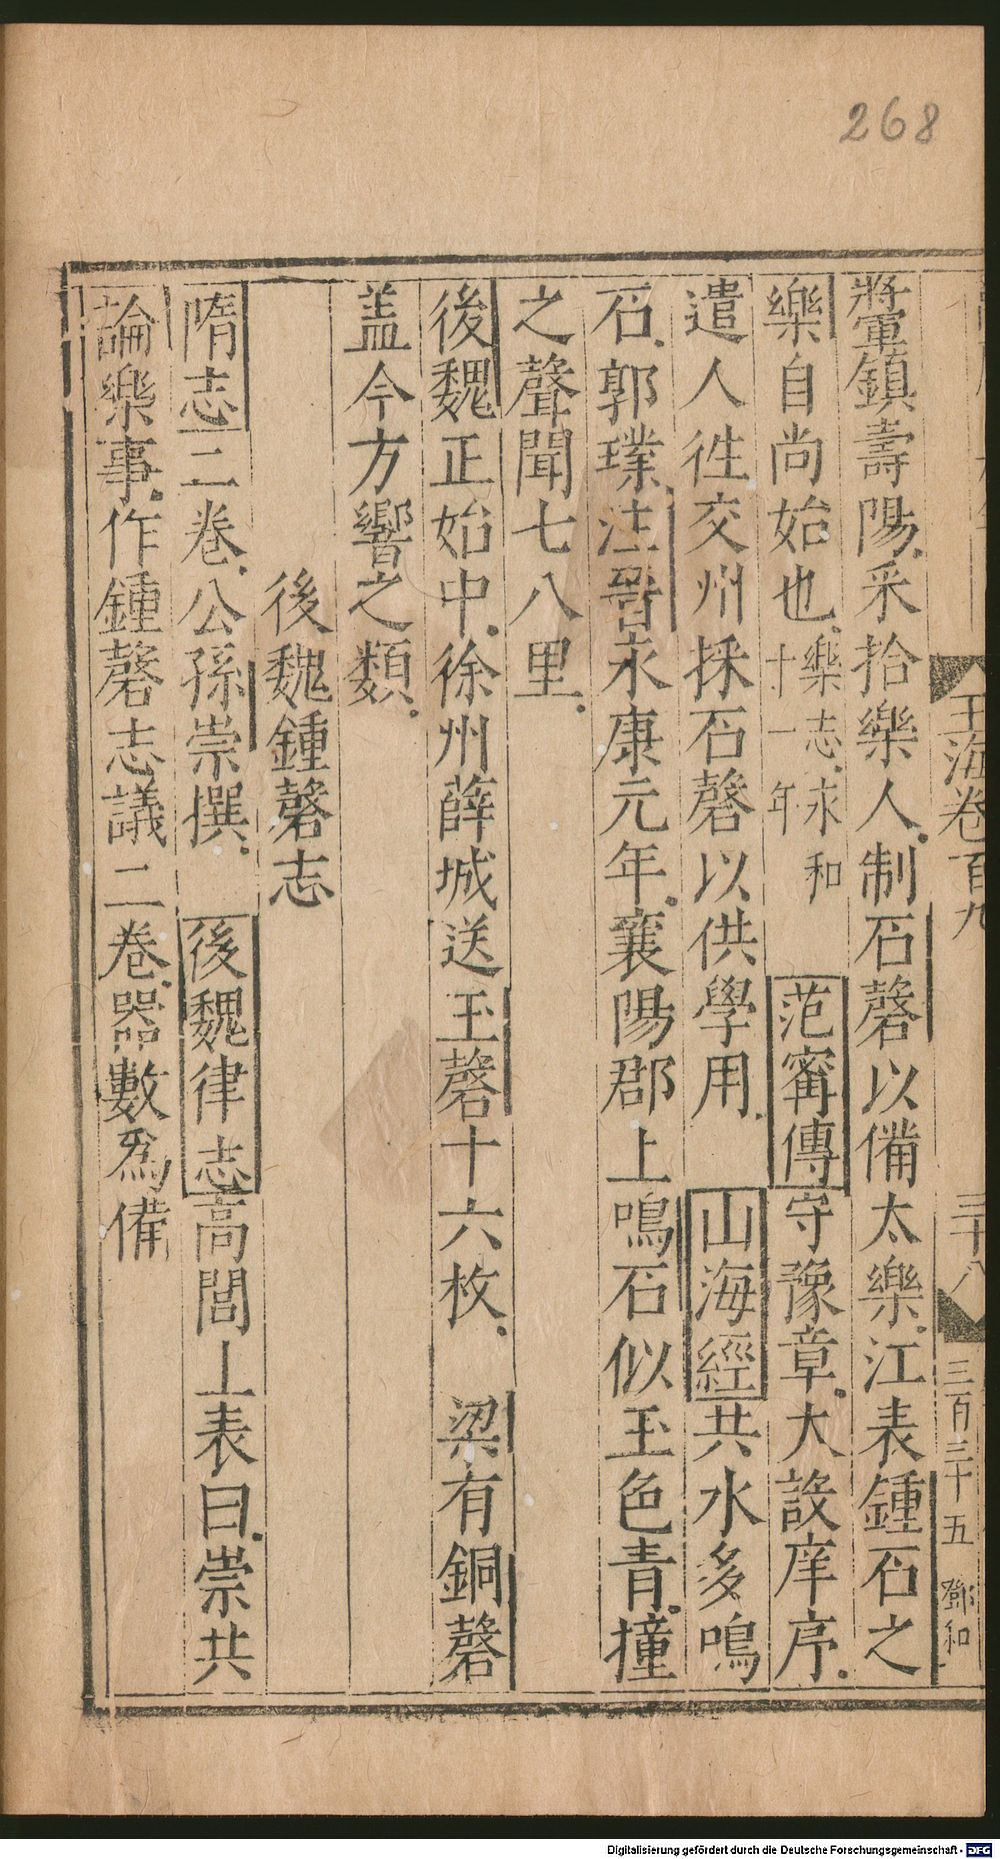 268
玉海卷百九
三十八
三百三十五 鄧和
將軍鎮壽陽采拾樂人制石磬以備太樂江表鍾石之
樂自尚始也樂志永和十一年 范甯傳守豫章大設庠序
遣人徃交州採石磬以供學用 山海經共水多鳴
石郭璞注晉永康元年襄陽郡上鳴石似玉色青撞
之聲聞七八里
後魏正始中徐州薛城送玉磬十六枚 梁有銅磬
盖今方響之類
後魏鍾磬志
隋志二卷公孫崇撰 後魏律志高閭上表曰崇共
論樂事作鍾磬志議二卷器數爲備
Digitalisierung gefördert durch die Deutsche Forschungsgemeinschaft - DFG